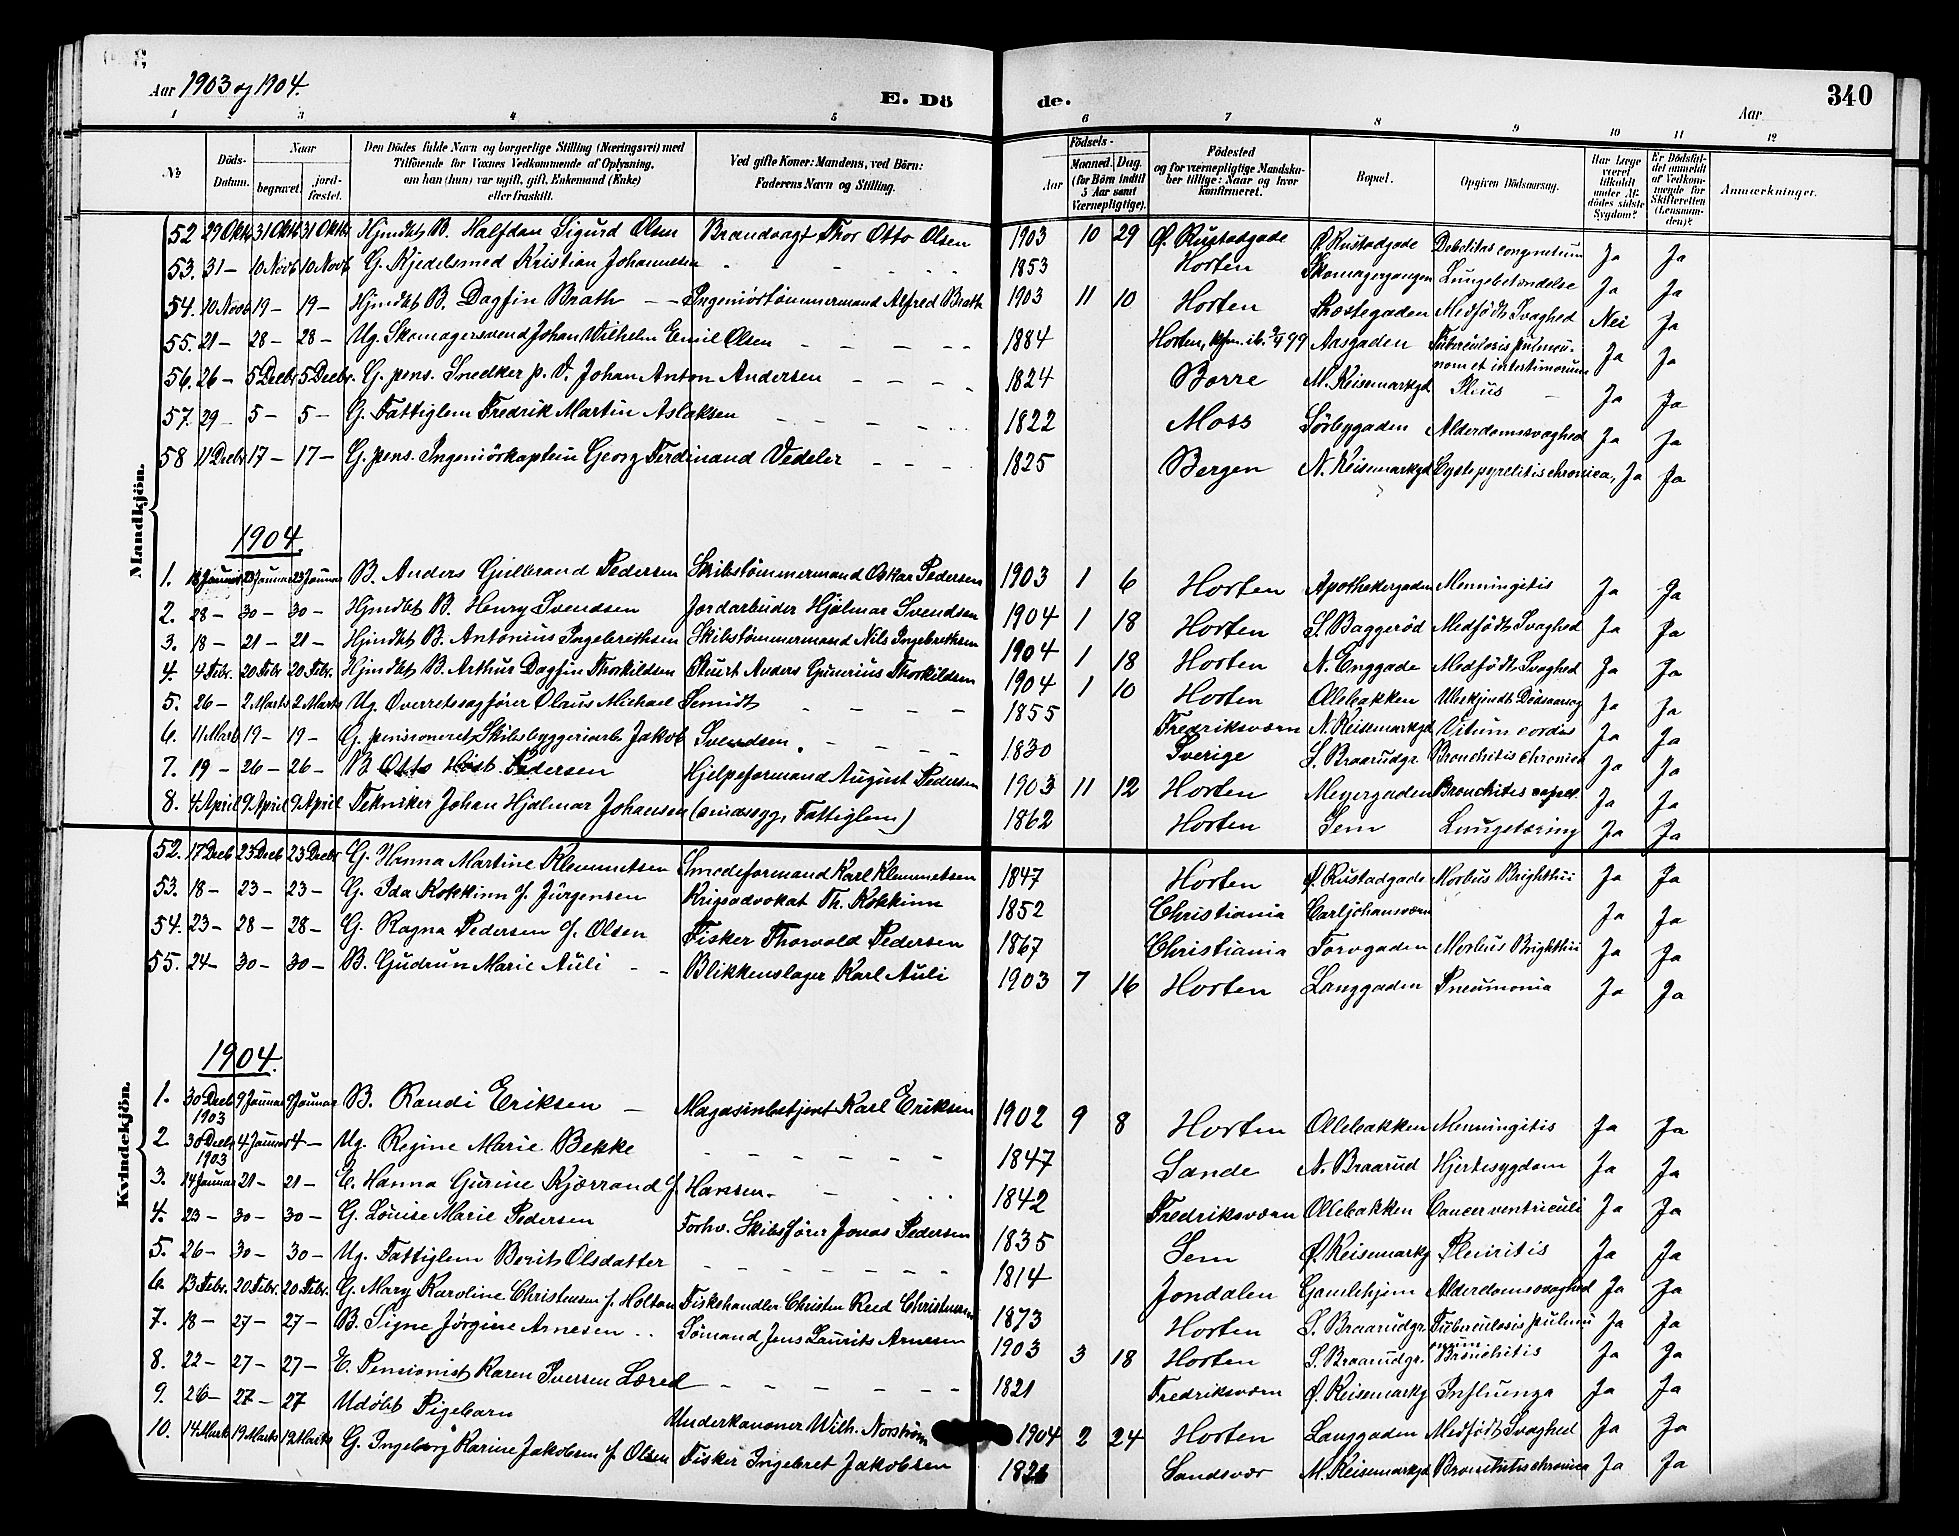 Aar 1903 og 1904.
E. Dö
de.
Aar
340
1 2 3 4 5 6 7 8 9 10 11 12
№
Döds-Datum.
Naar
begravet.
jord-fæstet.
Den Dödes fulde Navn og borgerlige Stilling (Næringsvei) med
Tilföiende for Voxnes Vedkommende af Oplysning,
om han (hun) var ugift, gift, Enkemand (Enke)
eller fraskilt.
Ved gifte Koner: Mandens, ved Börn:
Faderens Navn og Stilling.
Födsels-
Aar
Maaned. Dag.
(for Börn indtil 5 Aar samt Værnepligtige).
Födested
og for værnepligtige Mandska-
ber tillige: Naar og hvor
konfirmeret.
Bopæl.
Opgiven Dödsaarsag.
Har Læge været tilkaldt under Afdödes sidste Sygdom?
Er Dödsfaldet anmeldt af Vedkommende for Skifteretten (Lensmanden)?
Anmærkninger.
Mandkjön.
52 29 Oktb 31 Oktb 31 Oktb Hjmdbt B. Halfdan Sigurd Olsen Brandvagt Thor Otto Olsen 1903 10 29 Ø. Rustadgade Ø. Rustadgade Debilitas congenitum Ja Ja
53. 31 – 10 Novb 10 Novb G. Kjedelsmed Kristian Johannesen 1853 Horten Skomagergangen Lungebetændelse Ja Ja
54. 10 Novb 19 – 19 – Hjmdbt B. Dagfin Brath – – Ingeniörtömmermand Alfred Brath 1903 11 10 Horten Thostegaden Medfödt Svaghed Nei Ja
55. 21 – 28 – 28 – Ug. Skomagersvend Johan Wilhelm Emil Olsen 1884 Horten, kfm. ib. 99 Aasgaden Tuberculosis pulmu-
num et intestinorum Ja Ja
56. 26 – 5 Decbr 5 Decbr. G. pens. Snedker p. V. Johan Anton Andersen 1824 Borre M. Keisemarkgd. Ja Ja
57. 29 5 – 5 – G. Fattiglem Fredrik Martin Aslaksen 1822 Moss Sörbygaden Alderdomssvaghed Ja Ja
58 11 Decbr 17 – 17 – G. pens. Ingeniörkaptein Georg Ferdinand Vedeler 1825 Bergen N. Keisemarkgd Cystopyelitis chronica, Ja Ja
1904.
1. 18 Januar 23 Januar 23 Januar B. Anders Gulbrand Pedersen Skibstömmermand Oskar Pedersen 1903 1 6 Horten Apothekergaden Menningitis Ja Ja
2. 28 – 30 – 30 – Hjmdbt B. Henry Svendsen Jordarbeider Hjalmar Svendsen 1904 1 18 Horten S. Baggerød Medfödt Svaghed Ja Ja
3. 18 – 21 – 21 – Hjmdbt B. Antonius Ingebrethsen Skibstömmermand Nils Ingebrethsen 1904 1 18 Horten N. Enggade Medfödt Svaghed Ja Ja
4. 4 Febr. 20 Febr 20 Febr. Hjmdbt B. Arthur Dagfin Thorkildsen Stuert Anders Gunerius Thorkildsen 1904 1 10 Horten Ollebakken Ubekjendt Dödsaarsag Ja Ja
5. 26 – 2 Marts 2 Marts Ug. Overretssagfører Olaus Michael Semidt 1855 Fredriksværn N. Keisemarkgd Vitium cordis Ja Ja
6. 11 Mart 19 – 19 – G. pensioneret Skibsbyggeriarb. Jakob Svendsen. 1830 Sverige S. Braarudgr. Bronchitis chronica Ja Ja
7. 19 – 26 – 26 – B. Otto Pedersen Hjelpeformand August Pedersen 1903 11 12 Horten Meyergaden Bronchitis capil. Ja Ja
8. 4 April 9 April 9 April Tekniker Johan Hjalmar Johansen (sindssyg, Fattiglem) 1862 Horten Sem Lungetæring Ja Ja
Kvindekjön.
52. 17 Decb 23 Decb 23 Decbr G. Hanna Martine Klemmetsen Smedeformand Karl Klemmetsen 1847 Horten Ø. Rustadgade Morbus Brighthii Ja Ja
53. 18 – 23 – 23 – G. Ida Kokkinn f. Jürgensen Krigsadvokat Th. Kokkinn 1852 Christiania Carljohansværn Ja Ja
54. 23 – 28 – 28 – G. Ragna Pedersen f. Olsen Fisker Thorvald Pedersen 1867 Christiania Torvgaden Morbus Brighthii Ja Ja
55. 24 – 30 – 30 – B. Gudrun Marie Auli – – Blikkenslager Karl Auli 1903 7 16 Horten Langgaden Pneumonia Ja Ja
1904.
1. 30 Decb 1903 9 Januar 9 Januar B. Randi Eriksen – Magasinbetjent Karl Eriksen 1902 9 8 Horten Ollebakken Menningitis Ja Ja
2. 30 Decbr 1903 4 Januar 4 – Ug. Regine Marie Bekke 1847 Sande N. Braarud Hjertesygdom Ja Ja
3. 14 Januar 21 – 21 – E. Hanna Gurine Kjærrand f. Hansen. 1842 Fredriksværn Ollebakken Cancer ventriculi Ja Ja
4. 23 – 30 – 30 – G. Louise Marie Pedersen Forhv. Skibsfører Jonas Pedersen 1835 Sem Ø. Keisemarkg Pleuritis Ja Ja
5. 26 – 30 – 30 – Ug. Fattiglem Berit Olsdatter 1814 Jondalen Gamlehjem Alderdomssvaghed Ja Ja
6. 13 Febr. 20 Febr. 20 Febr. G. Mary Karoline Christensen f. Holtan Fiskehandler Christen Reed Christensen 1873 Horten S. Braarudgr. Tuberculosis pulmu
onum Ja Ja
7. 18 – 27 – 27 – B. Signe Jørgine Arnesen Sömand Jens Laurits Arnesen 1903 3 18 Horten S. Braarudgr. Bronchitis Ja Ja
8. 22 – 27 – 27 – E. Pensionist Karen Iversen Læred 1821 Fredriksværn Ø. Keisemarkg Influenza Ja Ja
9. 26 – 27 – 27 Udöbt Pigebarn Underkanoner Wilh. Norström 1904 2 24 Horten Langgaden Medfödt Svaghed Ja Ja
10. 14 Mart 19 Marts 19 Marts G. Ingeborg Karine Jakobsen f. Olsen Fisker Ingebret Jakobsen Sandsvær M. Keisemarkgd Bronchitis chronica Ja Ja